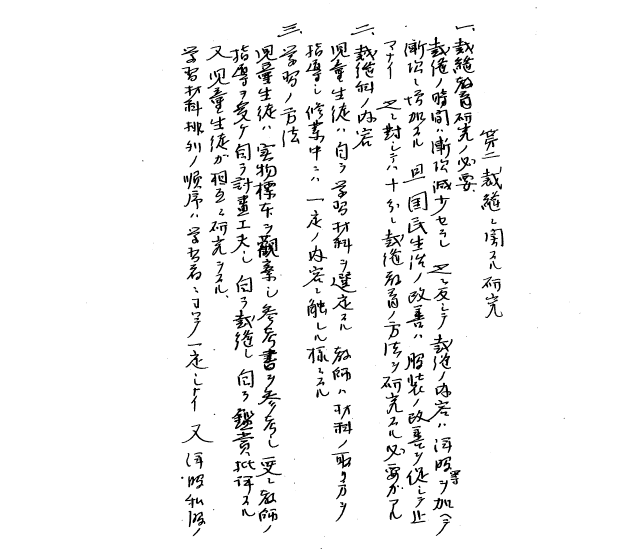 第二 裁縫ニ関スル研究
一、裁縫教育研究ノ必要
裁縫ノ時間ハ漸次減少セラレ 之ニ反シテ裁縫ノ内容ハ洋服等ヲ加ヘテ
漸次ニ増加スル 且 国民生活ノ改善ハ服装ノ改善ヲ促シテ止
マナイ 之ニ対シテハ十分ニ裁縫教育ノ方法ヲ研究スル必要ガアル
二、裁縫科ノ内容
児童生徒ハ自ラ学習材料ヲ選定スル 教師ハ材料ノ取リ方ヲ
指導シ修業中ニハ一定ノ内容ニ触レル様ニスル
三、学習ノ方法
児童生徒ハ実物標本ヲ観察シ参考書ヲ参考シ更ニ教師ノ
指導ヲ受ケ自ラ計畫工夫シ自ラ裁縫シ自ラ鑑賞批評スル
又 児童生徒ガ相互ニ研究スル、
学習材料排列ノ順序ハ学習者ニヨツテ一定シナイ 又 洋服私服ノ